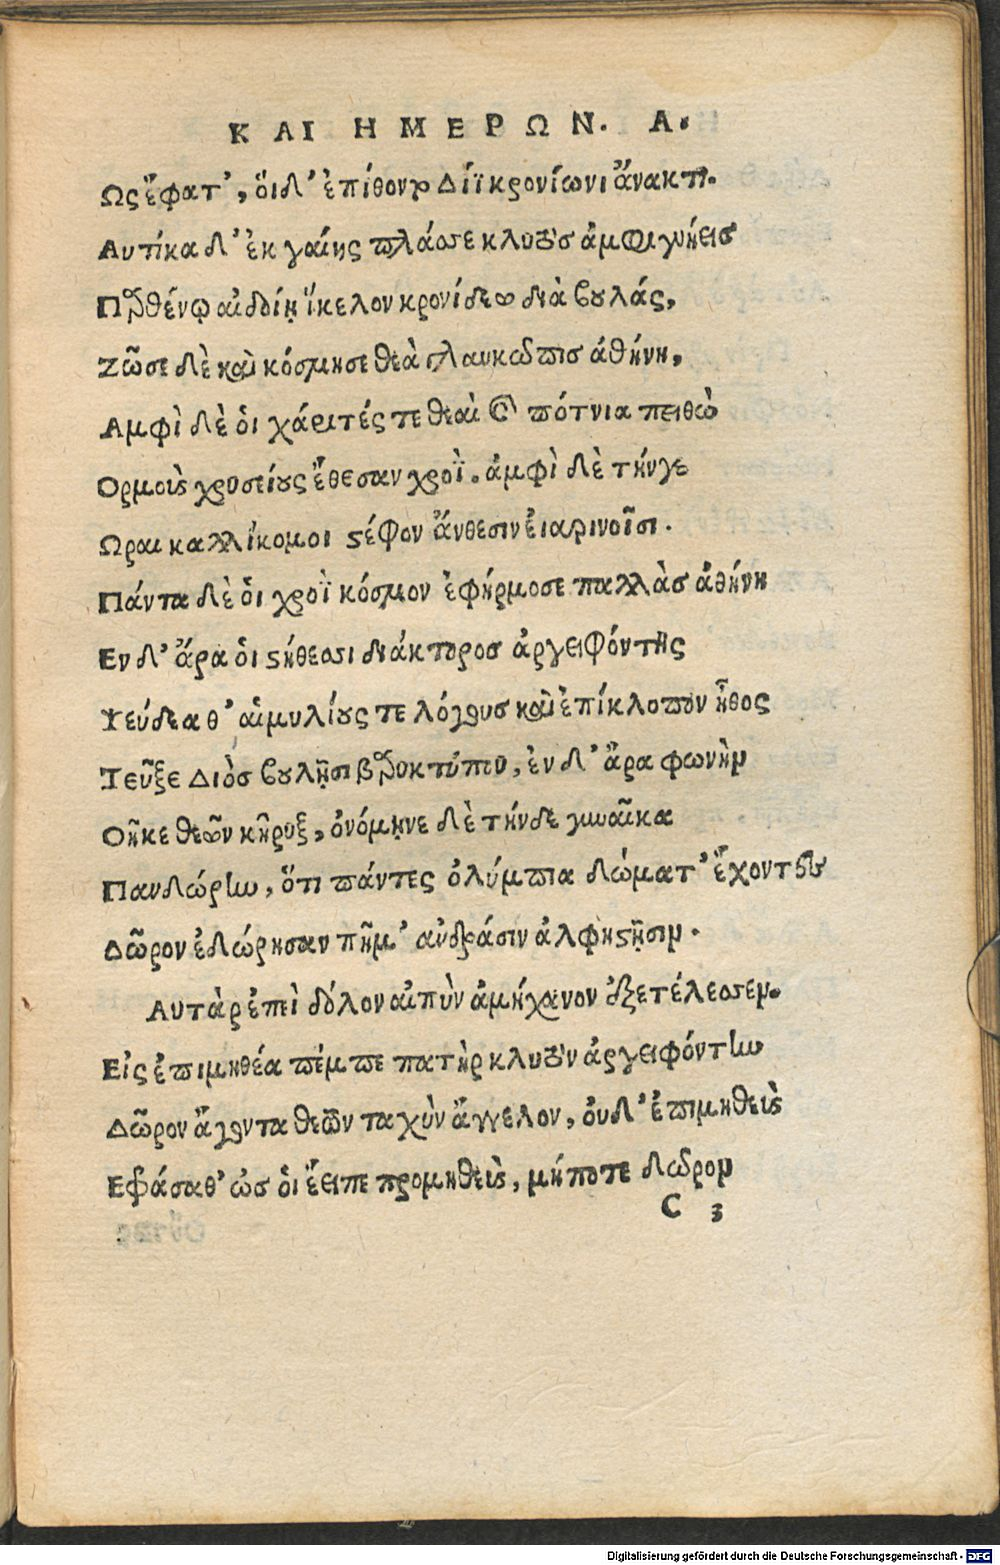 ΚΑΙ ΗΜΕΡΩΝ. Α.
Ως ἔφατ', ὅι δ' ἐπίθοντο Δίϊ κρονίωνι ἄνακτι.
Αυτίκα δ' ἐκ γαίης πλάσσε κλυτὸς ἀμφιγυήεις
Παρθένῳ αἰδοίῃ ἴκελον κρονίδεω διὰ βουλάς,
Ζῶσε δὲ καὶ κόσμησε θεὰ γλαυκῶπις ἀθήνη,
Αμφὶ δὲ ὁι χάριτές τε θεαὶ καὶ πότνια πειθὼ
Ορμοις χρυσείους ἔθεσαν χροΐ. ἀμφὶ δὲ τήνγε
Ωραι καλλίκομοι στέφον ἄνθεσιν ἐιαρινοῖσι.
Πάντα δὲ ὁι χροῒ κόσμον ἐφήρμοσε παλλὰς ἀθήνη
Εν δ' ἄρα ὁι στήθεσσι διάκτορος ἀργειφόντης
Ψεύδεα θ' αἱμυλίους τε λόγους καὶ ἐπίκλοπον ἦθος
Τεῦξε Διὸς βουλῇσι βαρυκτύπου, ἐν δ' ἄρα φωνὴν
Θῆκε θεῶν κῆρυξ, ὀνόμηνε δὲ τήνδε γυναῖκα
Πανδώρην, ὅτι πάντες ὀλύμπια δώματ' ἔχοντες
Δῶρον ἐδώρησαν πῆμ' ἀνδράσιν ἀλφηστῇσιν.
Αυτὰρ ἐπεὶ δόλον αἰπὺν ἀμήχανον ἐξετέλεσσεν.
Εἰς ἐπιμηθέα πέμπε πατὴρ κλυτὸν ἀργειφόντην
Δῶρον ἄγοντα θεῶν ταχὺν ἄγγελον, ὀυδ' ἐπιμηθεὺς
Εφράσαθ' ὡς ὁι ἔειπε προμηθεὺς, μήποτε δῶρον
C 3